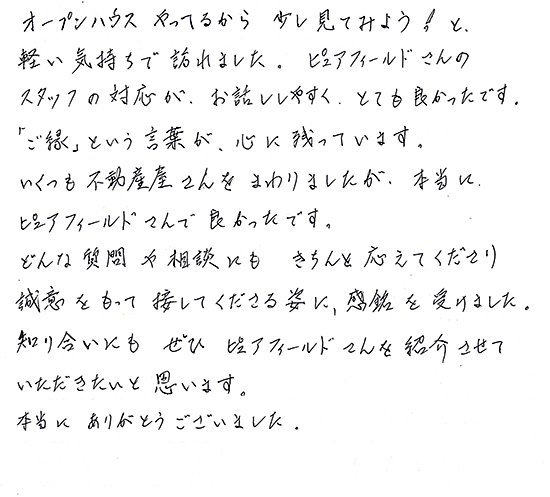 オープンハウス やってるから 少し見てみよう！と、
軽い気持ちで訪れました。ピュアフィールドさんの
スタッフの対応が、お話ししやすく、とても良かったです。
「ご縁」という言葉が、心に残っています。
いくつも不動産屋さんをまわりましたが、本当に
ピュアフィールドさんで良かったです。
どんな質問や相談にも きちんと応えてくださり
誠意をもって接してくださる姿に、感銘を受けました。
知り合いにも ぜひ ピュアフィールドさんを紹介させて
いただきたいと思います。
本当に ありがとうございました。